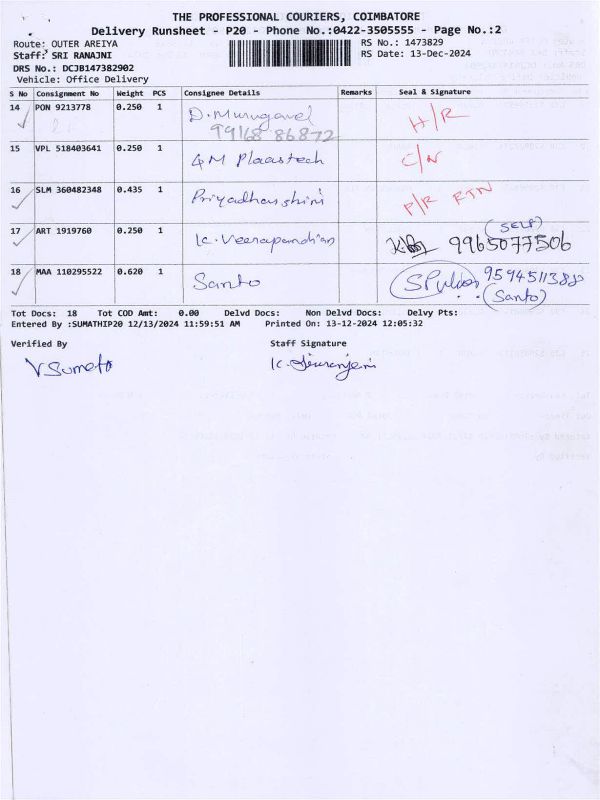 THE PROFESSIONAL COURIERS, COIMBATORE
Delivery Runsheet - P20 - Phone No.:0422-3505555 - Page No.:2
Route: OUTER AREIYA RS No.: 1473829
Staff: SRI RANAJNI RS Date: 13-Dec-2024
DRS No.: DCJB147382902
Vehicle: Office Delivery
S No Consignment No Weight PCS Consignee Details Remarks Seal & Signature
14 PON 9213778 0.250 1 D. Murugavel H/R
99168 86872
15 VPL 518403641 0.250 1 4M Plaastech C/N
16 SLM 360482348 0.435 1 Priyadharshini P/R RTN
17 ART 1919760 0.250 1 K. Veerapandian (SELF) 9965077506
18 MAA 110295522 0.620 1 Santo 9594511388
(Santo)
Tot Docs: 18 Tot COD Amt: 0.00 Delvd Docs: Non Delvd Docs: Delvy Pts:
Entered By :SUMATHIP20 12/13/2024 11:59:51 AM Printed On: 13-12-2024 12:05:32
Verified By Staff Signature